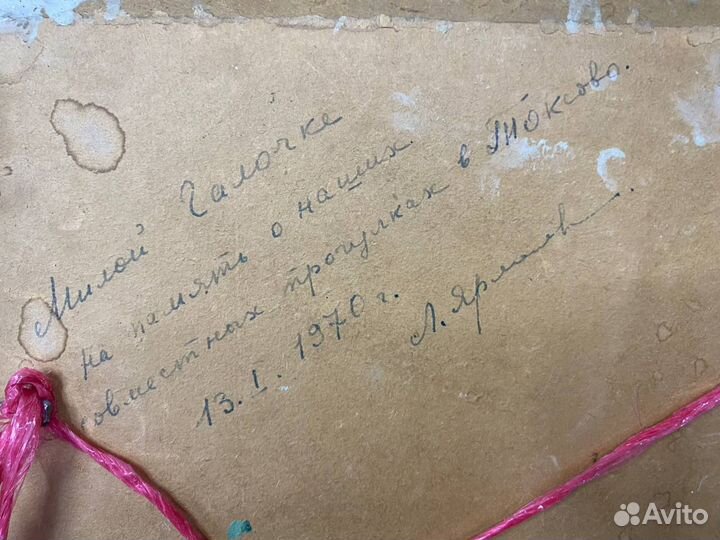 Милой Галочке
на память о наших
совместных прогулках в Токсово.
13.I.1970 г.
Л. Ярмо
Avito